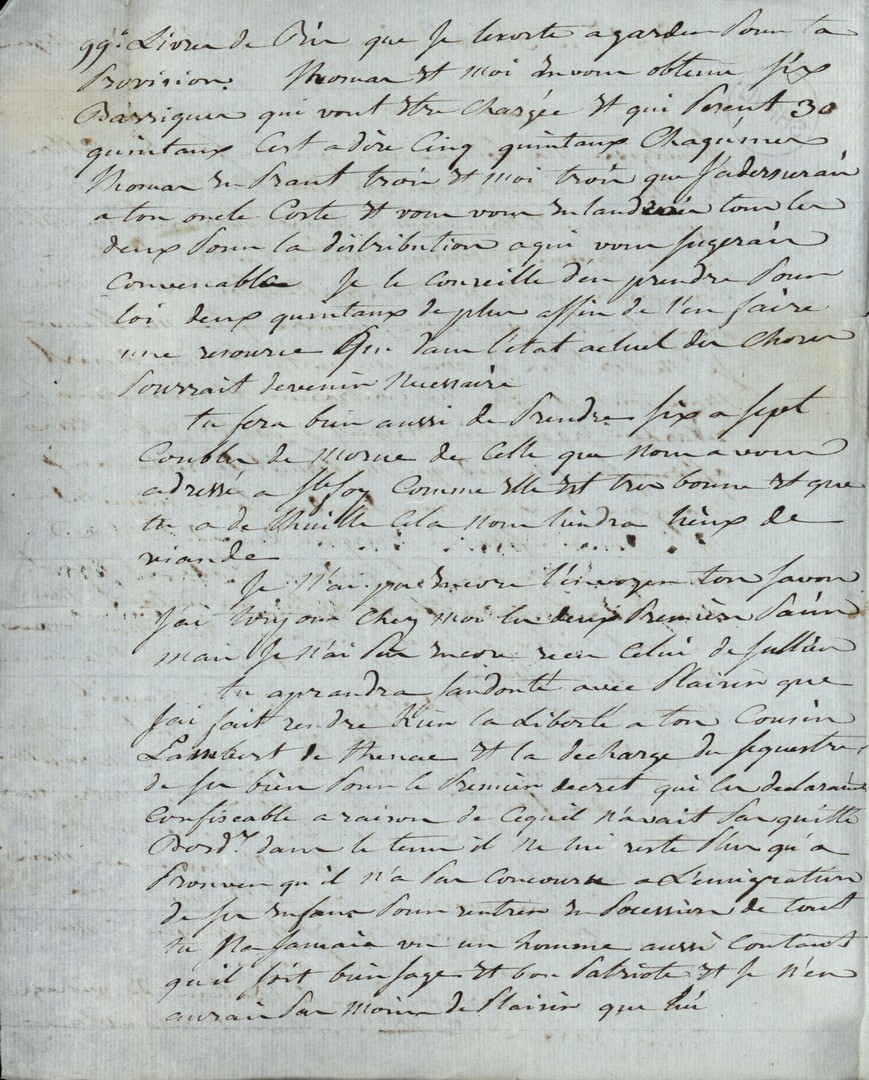 99. Livres de Ris que Je t'exorte a garder Pour ta
Provision. Thomas et moi En vons obtenu Six
Barriques qui vont Etre Chargée et qui Pesent 30
quintaux C'est a dire Cinq quintaux Chaqu'une
Thomas En Prant trois et moi trois que J'adesserais
a ton oncle Coste et vous vous Entandrais tous les
deux Pour la distribution a qui vous Jugerais
Convenable Je te Conseille d'en prendre Pour
toi deux quintaux de plus affin de t'en faire
une resource Que dans l'état actuel des Choses
Pourrait devenir Necessaire
tu fera bien aussi de Prendre Six a Sept
Couble de morue de Celle que nous avons
adressé a Ste foy Comme Elle est tres bonne et que
tu a de l'huille Cela nous tiendra lieux de
viande
Je n'ai pas Encore t'envoyer ton Savon
J'ai toujours Chez moi les deux Premiers Pains
mais Je n'ai Pas Encore recu Celui de Jullien
tu aprandra Sandoute avec Plaisir que
J'ai fait rendre hier la Liberté a ton Cousin
Lambert de thenac et la decharge du Sequestre
de Ses bien Pour le Premier decret qui les declarais
Confiscable a raison de Cequil n'avait Pas quitté
Bord.x dans le tems il ne lui reste Plus qu'a
Prouver qu'il n'a Pas Concouru a L'emigration
de Ses Enfans Pour rentrer En Pocession de tout
tu N'a Jamais vu un homme aussi Contant
qu'il Soit bien Sage et bon Patriote et Je n'en
aurais Pas moins de Plaisir que lui